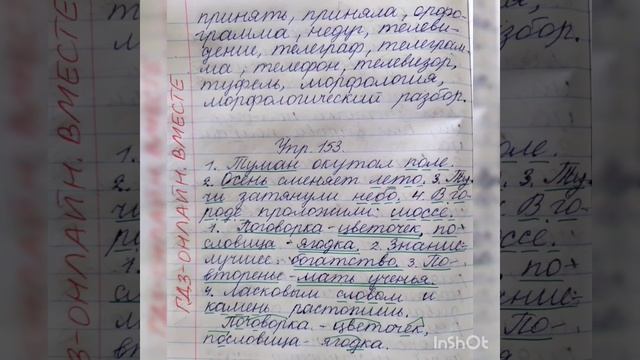 принять, приняла, орфо-
грамма, недуг, телеви-
дение, телеграф, телеграм-
ма, телефон, телевизор,
туфель, морфология,
морфологический разбор.
Упр. 153
1. Туман окутал поле.
2. Осень сменяет лето. 3. Ту-
чи затянули небо. 4. В го-
роде проложили шоссе.
1. Поговорка - цветочек, по-
словица - ягодка. 2. Знание -
лучшее богатство. 3. По-
вторенье - мать ученья.
4. Ласковым словом и
камень растопишь.
Поговорка - цветочек,
пословица - ягодка.
ГДЗ-ОНЛАЙН. ВМЕСТЕ
InShot